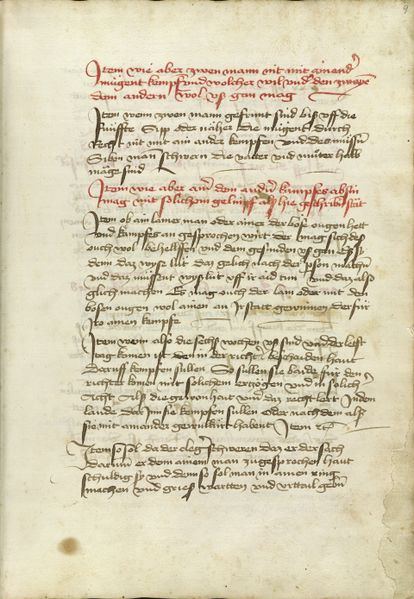 9
Item wie aber zwen man nit mit ainander
mügent kempfen vnd welcher wil vnder den zwayen
dem andern wol vß gan mag
Item wenn zwen mann gefrunt sind bis vff die
fünffte Sipp oder näher Die mügent durch
recht nit mit ain ander kempfen vnd des müssen
Siben man schwern die vatter vnd mutter halb
mäge sind
Item wie aber ainer dem andern kampfes absin
mag mit solichem gelimpf als hie geschriben stät
Item ob ain lamer man oder ainer der böse ougen hett
vnd kampfes an gesprochen wirt der mag sich des
ouch wol behelffen vnd dem gesunden vß gan Es sy
denn daz wyse lüt daz gelich nach der person machen
vnd daz müssent wyß lüt vff ir aid tun vnd daz also
glich machen Es mag ouch der lam oder mit den
bösen ougen wol ainen an Ir statt gewinnen der für
ir ainen kempfe
Item wenn also die sechs wochen vß sind vnd der letst
tag komen ist den in der richter beschaiden haut
daruff kempfen süllen So süllen sie baide für den
richter komen mit solichem erzögen vnd in solicher
Acht Als die gewonhait vnd daz recht lert Inden
lande dar Inn sie kempfen süllen oder nach dem als
sie mit ainander gewillkürt habent Item
Item so sol da der cleger schweren daz er der sach
darumb er dem ainem man zugesprochen haut
schuldig sy vnd denn so sol man in ainen ring
machen vnd grieß wartten vnd vrttail geben